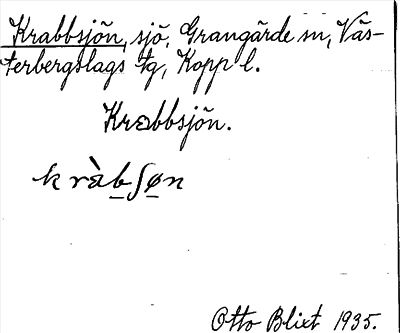 Krabbsjön, sjö, Grangärde sn, Väs-
terbergslags tg, Kopp l.
Krabbsjön.
k ràb̲ʃø̲n
Otto Blixt 1935.